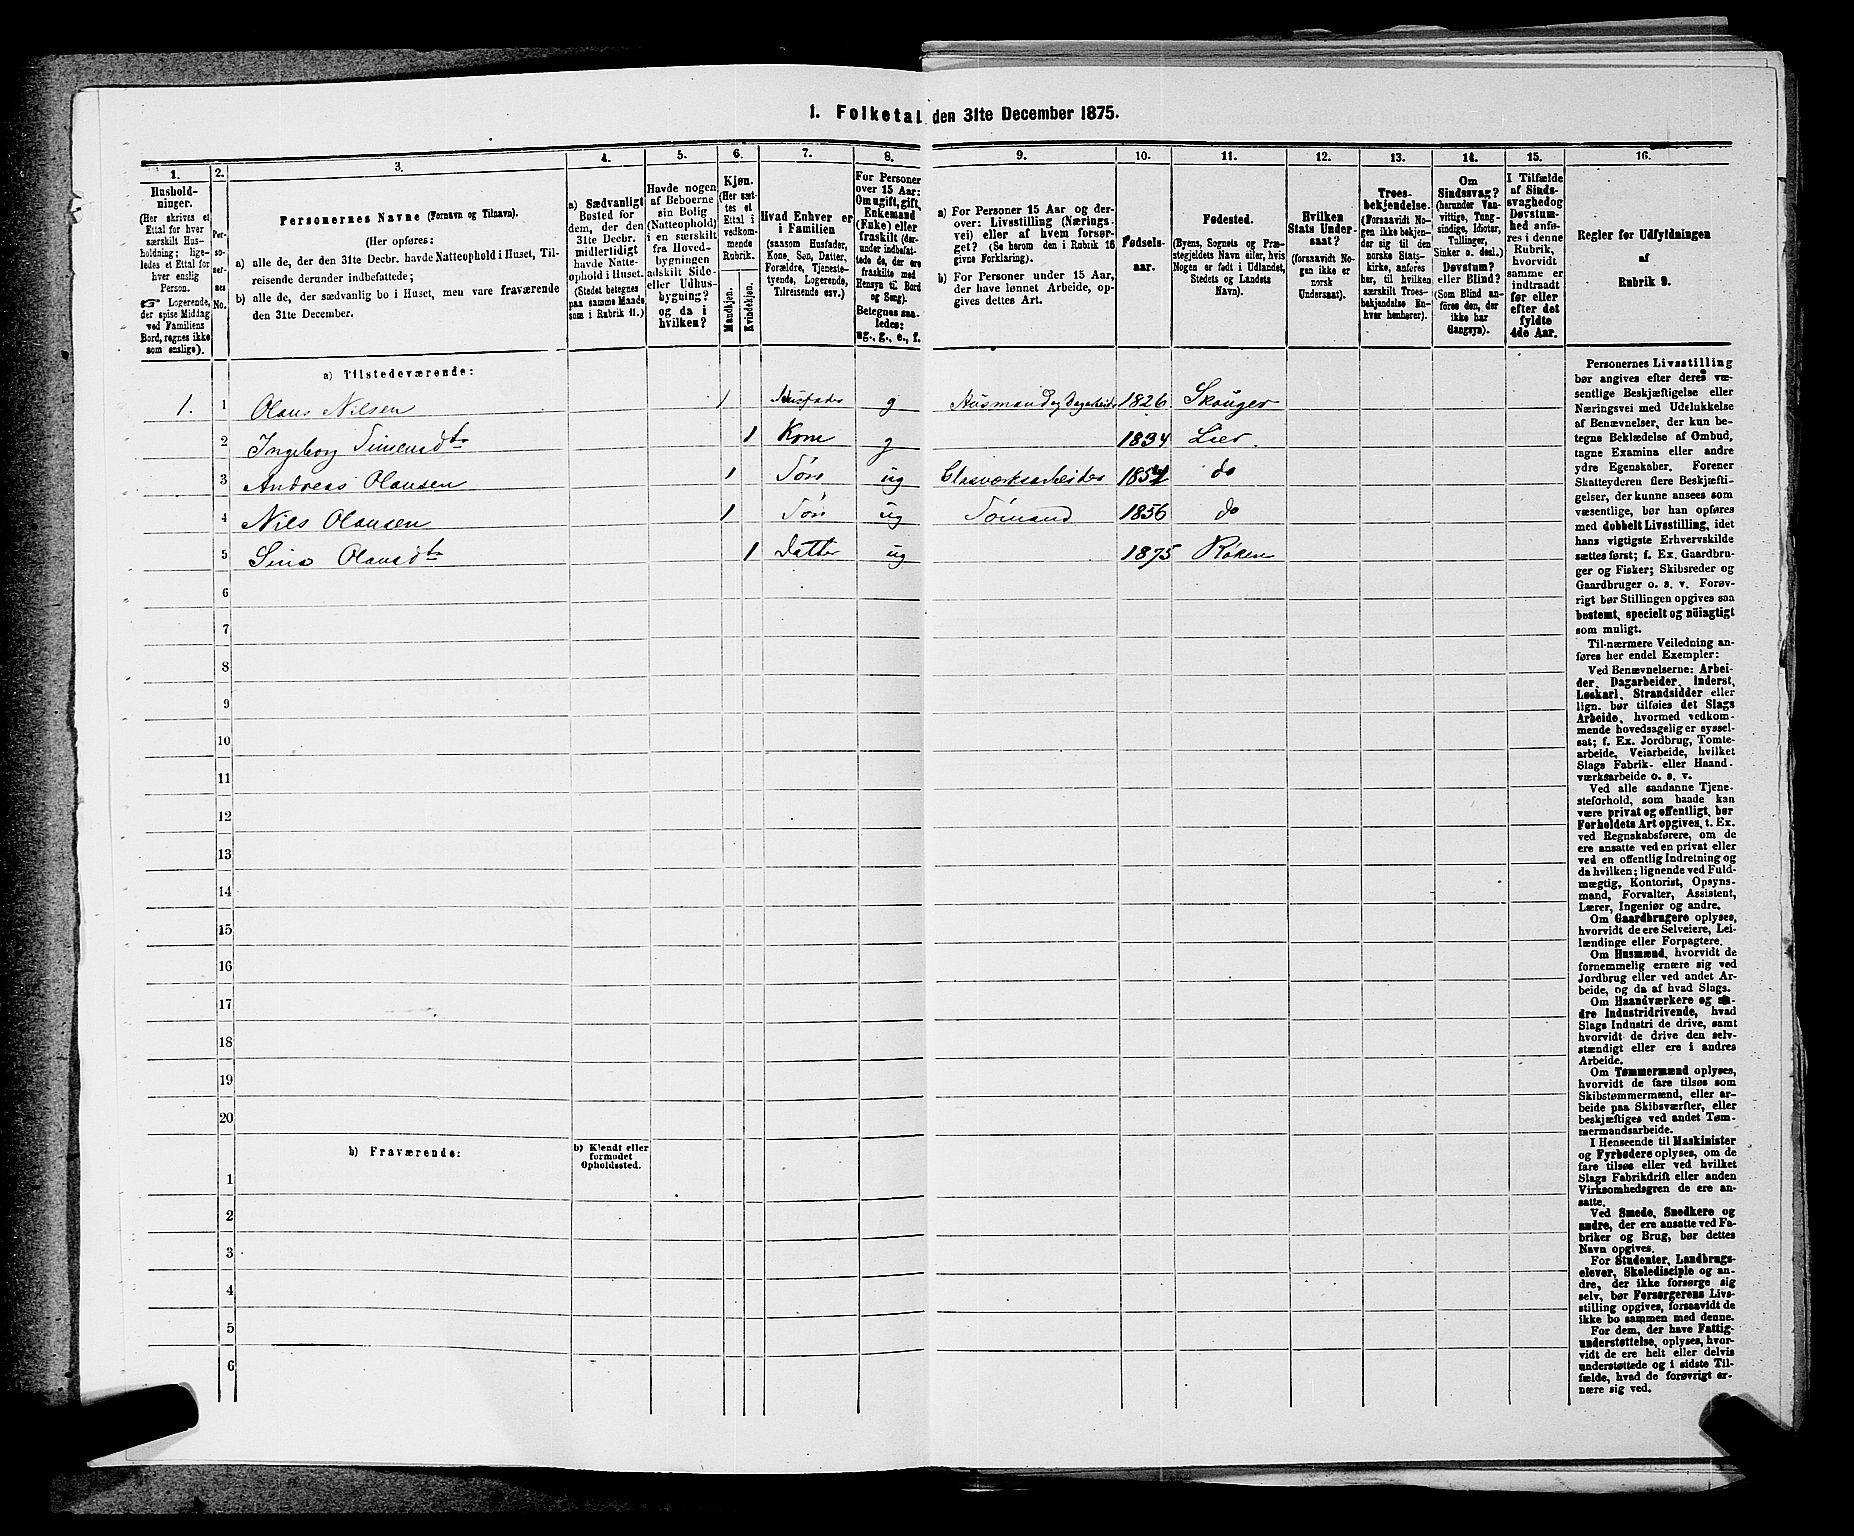 1. Folketal den 31te December 1875.
1. 2. 3. 4. 5. 6. 7. 8. 9. 10. 11. 12. 13. 14. 15. 16.
Hushold-
ninger.
(Her skrives et
Ettal for hver
særskilt Hus-
holdning; lige-
ledes et Ettal for
hver enslig
Person.
☞ Logerende,
der spise Middag
ved Familiens
Bord, regnes ikke
som enslige).
Per-
so-
ner-
nes
No.
Personernes Navne (Fornavn og Tilnavn).
(Her opføres:
a) alle de, der den 31te Decbr. havde Natteophold i Huset, Til-
reisende derunder indbefattede;
b) alle de, der sædvanlig bo i Huset, men vare fraværende
den 31te December.
a) Sædvanligt
Bosted for
dem, der den
31te Decbr.
midlertidigt
havde Natte-
ophold i Huset.
(Stedet betegnes
paa samme Maade
som i Rubrik 11.)
Havde nogen
af Beboerne
sin Bolig
(Natteophold)
i en særskilt
fra Hoved-
bygningen
adskilt Side-
eller Udhus-
bygning?
og da i
hvilken?
Kjøn.
(Her sæt-
tes et
Ettal i
vedkom-
mende
Rubrik.
Mandkjøn.
Kvindekjøn.
Hvad Enhver er
i Familien
(saasom Husfader,
Kone, Søn, Datter,
Forældre, Tjeneste-
tyende, Logerende,
Tilreisende osv.)
For Personer
over 15 Aar:
Om ugift, gift,
Enkemand
(Enke) eller
fraskilt (der-
under indbefat-
tede de, der ere
fraskilte med
Hensyn til Bord
og Seng).
Betegnes saa-
ledes:
ug., g., e., f.
a) For Personer 15 Aar og der-
over: Livsstilling (Nærings-
vei) eller af hvem forsør-
get? (Se herom den i Rubrik 16
givne Forklaring).
b) For Personer under 15 Aar,
der have lønnet Arbeide, op-
gives dettes Art.
Fødsels-
aar.
Fødested.
(Byens, Sognets og Præ-
stegjeldets Navn eller, hvis
Nogen er født i Udlandet,
Stedets og Landets
Navn).
Hvilken
Stats Under-
saat?
(forsaavidt No-
gen ikke er
norsk
Undersaat).
Troes-
bekjendelse.
(Forsaavidt No-
gen ikke bekjen-
der sig til den
norske Stats-
kirke, anføres
her, til hvilken
særskilt Troes-
bekjendelse En-
hver henhører).
Om
Sindssvag?
(herunder Van-
vittige, Tung-
sindige, Idioter,
Tullinger,
Sinker o. desl.)
Døvstum?
eller Blind?
(Som Blind an-
føres den, der
ikke har
Gangsyn).
I Tilfælde
af Sinds-
svaghed og
Døvstum-
hed anfø-
res i denne
Rubrik,
hvorvidt
samme er
indtraadt
før eller
efter det
fyldte
4de Aar.
Regler for Udfyldningen
af
Rubrik 9.
a) Tilstedeværende:
1. 1 Olaus Nilsen 1 Husfader g Husmand og Dagarbeider 1826 Skouger
2 Ingeborg Simensdtr 1 Kone g 1834 Lier.
3 Andreas Olausen 1 Søn ug Glasværksarbeider 1854 do
4 Nils Olausen 1 Søn ug Sømand 1856 do
5 Olausdtr 1 Datter ug 1875 Røken
6
7
8
9
10
11
12
13
14
15
16
17
18
19
20
b) Fraværende:
b) Kjendt eller
formodet
Opholdssted.
1
2
3
4
5
6
Personernes Livsstilling
bør angives efter deres væ-
sentlige Beskjæftigelse eller
Næringsvei med Udelukkelse
af Benævnelser, der kun be-
tegne Beklædelse af Ombud,
tagne Examina eller andre
ydre Egenskaber. Forener
Skatteyderen flere Beskjæfti-
gelser, der kunne ansees som
væsentlige, bør han opføres
med dobbelt Livsstilling, idet
hans vigtigste Erhvervskilde
sættes først; f. Ex. Gaardbru-
ger og Fisker; Skibsreder og
Gaardbruger o. s. v. Forøv-
rigt bør Stillingen opgives saa
bestemt, specielt og nöiagtigt
som muligt.
Til nærmere Veiledning an-
føres her endel Exempler:
Ved Benævnelserne: Arbei-
der, Dagarbeider, Inderst,
Løskarl, Strandsidder eller
lign. bør tilføies det Slags
Arbeide, hvormed vedkom-
mende hovedsagelig er syssel-
sat; f. Ex. Jordbrug, Tomte-
arbeide, Veiarbeide, hvilket
Slags Fabrik- eller Haand-
værksarbeide o. s. v.
Ved alle saadanne Tjene-
steforhold, som baade kan
være privat og offentligt, bør
Forholdets Art opgives, t. Ex.
ved Regnskabsførere, om de
ere ansatte ved en privat eller
ved en offentlig Indretning og
da hvilken; lignende ved Fuld-
mægtig, Kontorist, Opsyns-
mand, Forvalter, Assistent,
Lærer, Ingeniør og andre.
Om Gaardbrugere oplyses,
hvorvidt de ere Selveiere, Lei-
lændinge eller Forpagtere.
Om Husmænd, hvorvidt de
fornemmelig ernære sig ved
Jordbrug eller ved andet Ar-
beide, og da af hvad Slags.
Om Haandværkere og an-
dre Industridrivende, hvad
Slags Industri de drive, samt
hvorvidt de drive den selv-
stændigt eller ere i andres
Arbeide.
Om Tømmermænd oplyses,
hvorvidt de fare tilsøs som
Skibstømmermænd, eller ar-
beide paa Skibsværfter, eller
beskjæftiges ved andet Tøm-
mermandsarbeide.
I Henseende til Maskinister
og Fyrbødere oplyses, om de
fare tilsøs eller ved hvilket
Slags Fabrikdrift eller anden
Virksomhedsgren de ere an-
satte.
Ved Smede, Snedkere og
andre, der ere ansatte ved Fa-
briker og Brug, bør dettes
Navn opgives.
For Studenter, Landbrugs-
elever, Skoledisciple og an-
dre, der ikke forsørge sig
selv, bør Forsørgerens Livs-
stilling opgives, forsaavidt de
ikke bo sammen med denne.
For dem, der have Fattig-
understøttelse, oplyses, hvor-
vidt de ere helt eller delvis
understøttede og i sidste Til-
fælde, hvad de forøvrigt er-
nære sig ved.